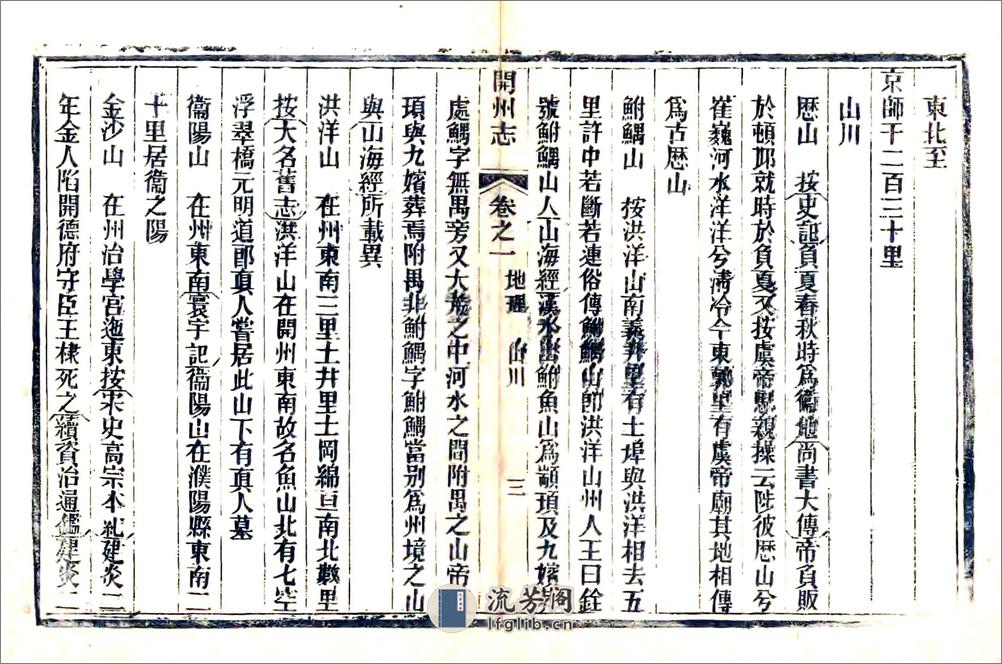 東北至
京師千二百二十里
山川
歷山　按史記負夏春秋時爲衞地尚書大傳帝負販
於頓邱就時於負夏又按虞帝思親操云陟彼歷山兮
崔巍河水洋洋兮清泠今東郭里有虞帝廟其地相傳
爲古歷山
鮒鰅山　按洪洋山南義井里有土埠與洪洋相去五
里許中若斷若連俗傳鮒鰅山卽洪洋山州人王曰銓
號鮒鰅山人山海經漢水出鮒魚山爲顓頊及九嬪葬
開州志
卷之一　地理　山川　三
處鰅字無禺旁又大荒之中河水之間附禺之山帝顓
頊與九嬪葬焉附禺非鮒鰅字鮒鰅當别爲州境之山
與山海經所載異
洪洋山　在州東南三里土井里土岡綿亘南北數里
按大名舊志洪洋山在開州東南故名魚山北有七空
浮翠橋元明道郎真人嘗居此山下有真人墓
衞陽山　在州東南寰宇記衞陽山在濮陽縣東南二
十里居衞之陽
金沙山　在州治學宮迤東按宋史高宗本紀建炎二
年金人陷開德府守臣王棣死之續資治通鑑建炎二
流芳閣
lfglib.cn